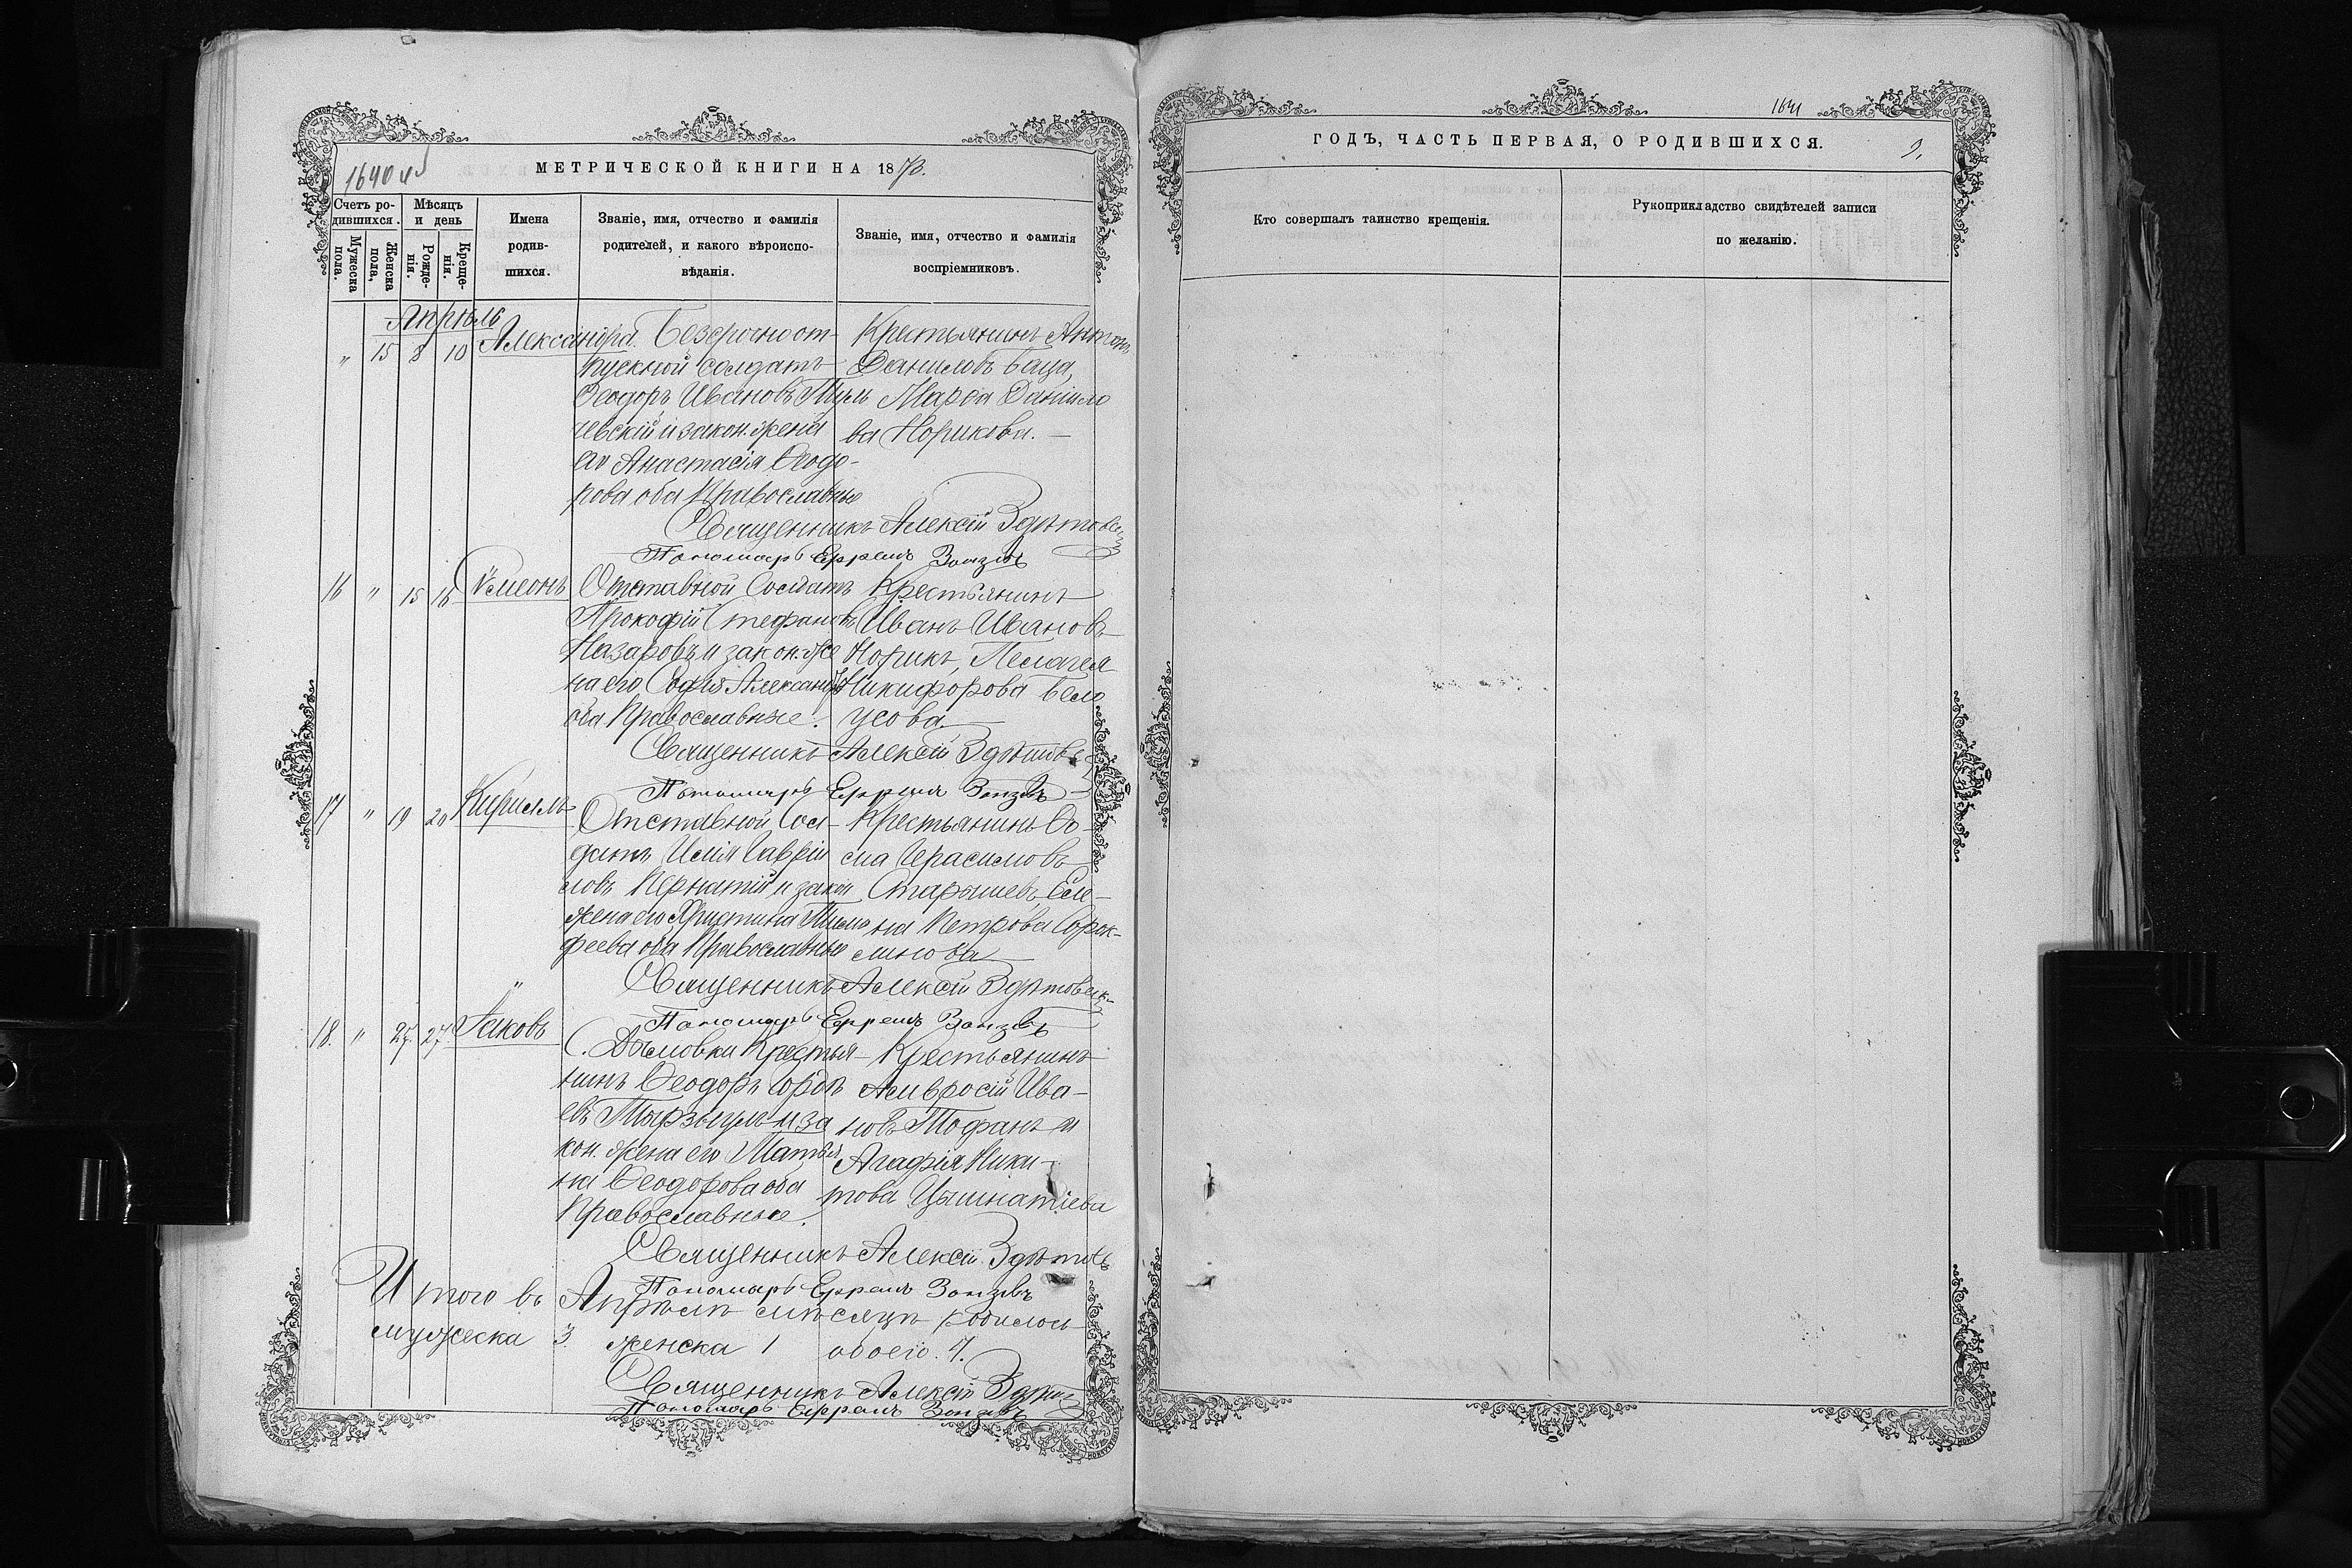 1640 и
МЕТРИЧЕСКОЙ КНИГИ НА 1873.
Счетъ родившихся.
Мѣсяцъ и день
Мужеска пола.
Женска пола,
Рожденія.
Крещенія.
Имена родившихся.
Званіе, имя, отчество и фамилія
родителей, и какого вѣроиспо-
вѣданія.
Званіе, имя, отчество и фамилія
воспріемниковъ.
Апрѣль
" 15 8 10 Александра.
Безсрочноот-
пускной солдатъ
Ѳеодоръ Ивановъ
чевскій и закон. жена
его Анастасія Ѳеодо-
рова оба Православные
Крестьянинъ Антонъ
Даниловъ Баца,
Марѳа Данило
ва Норикова.
Священникъ Алексій
Пономарь Ефремъ
16 " 15 16 Сѵмеонъ
Отставной Солдатъ
Прокофій Стефановъ
Назаровъ и закон. же
на его Софія Александр
оба Православные.
Крестьянинъ
Иванъ Ивановъ
Норикъ, Пелагея
Никифорова Бело
усова.
Священникъ Алексій
Пономарь Ефремъ
17 " 19 20 Кириллъ
Отставной Сол-
датъ Илія Гаврии
ловъ Пернатій и закон
жена его Христина Тимо
феева оба Православные
Крестьянинъ Ѳо-
ма Герасимовъ
Старышевъ, Еле-
на Петрова
Священникъ Алексій
Пономарь Ефремъ
18. " 25. 27. Іаковъ
С. Крестья-
нинъ Ѳеодоръ
евъ и за
кон. жена его Матрі
на Ѳеодорова оба
Православные.
Крестьянинъ
Амвросій Ива-
новъ Тофанъ и
Агафія Ники-
това
Священникъ Алексій
Пономарь Ефремъ
Итого въ Апрѣлѣ мѣсяцѣ родилось
мужеска 3. женска 1 обоего. 4.
Священникъ Алексій
Пономарь Ефремъ
1641
ГОДЪ, ЧАСТЬ ПЕРВАЯ, О РОДИВШИХСЯ.
9.
Кто совершалъ таинство крещенія.
Рукоприкладство свидѣтелей записи
по желанію.